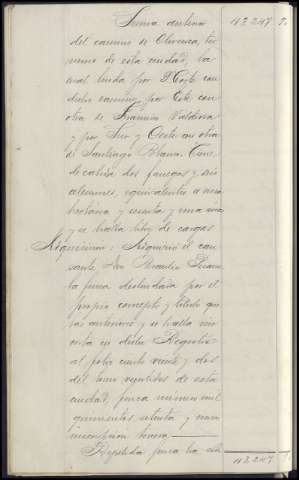 Suma anterior 42.247 2.
del camino de Olivenza, tér
mino de esta ciudad, la
cual linda por Norte con
dicho camino, por Este con
otra de Francisco Valdivia
y por Sur y Oeste con otra
de Santiago Blanco. Tiene
de cabida dos fanegas y seis
celemines, equivalentes a una
hectárea y sesenta y una área
y se halla libre de cargas
Adquisición: Adquirió el cau
sante, Don
la finca deslindada por el
propio concepto y título que
las anteriores y se halla ins
crita en dicho Registro
al folio ciento veinte y dos
del tomo veintidos de esta
ciudad, finca número mil
quinientos setenta y nueve
inscripción tercera.
Repetida finca ha sido
42.247